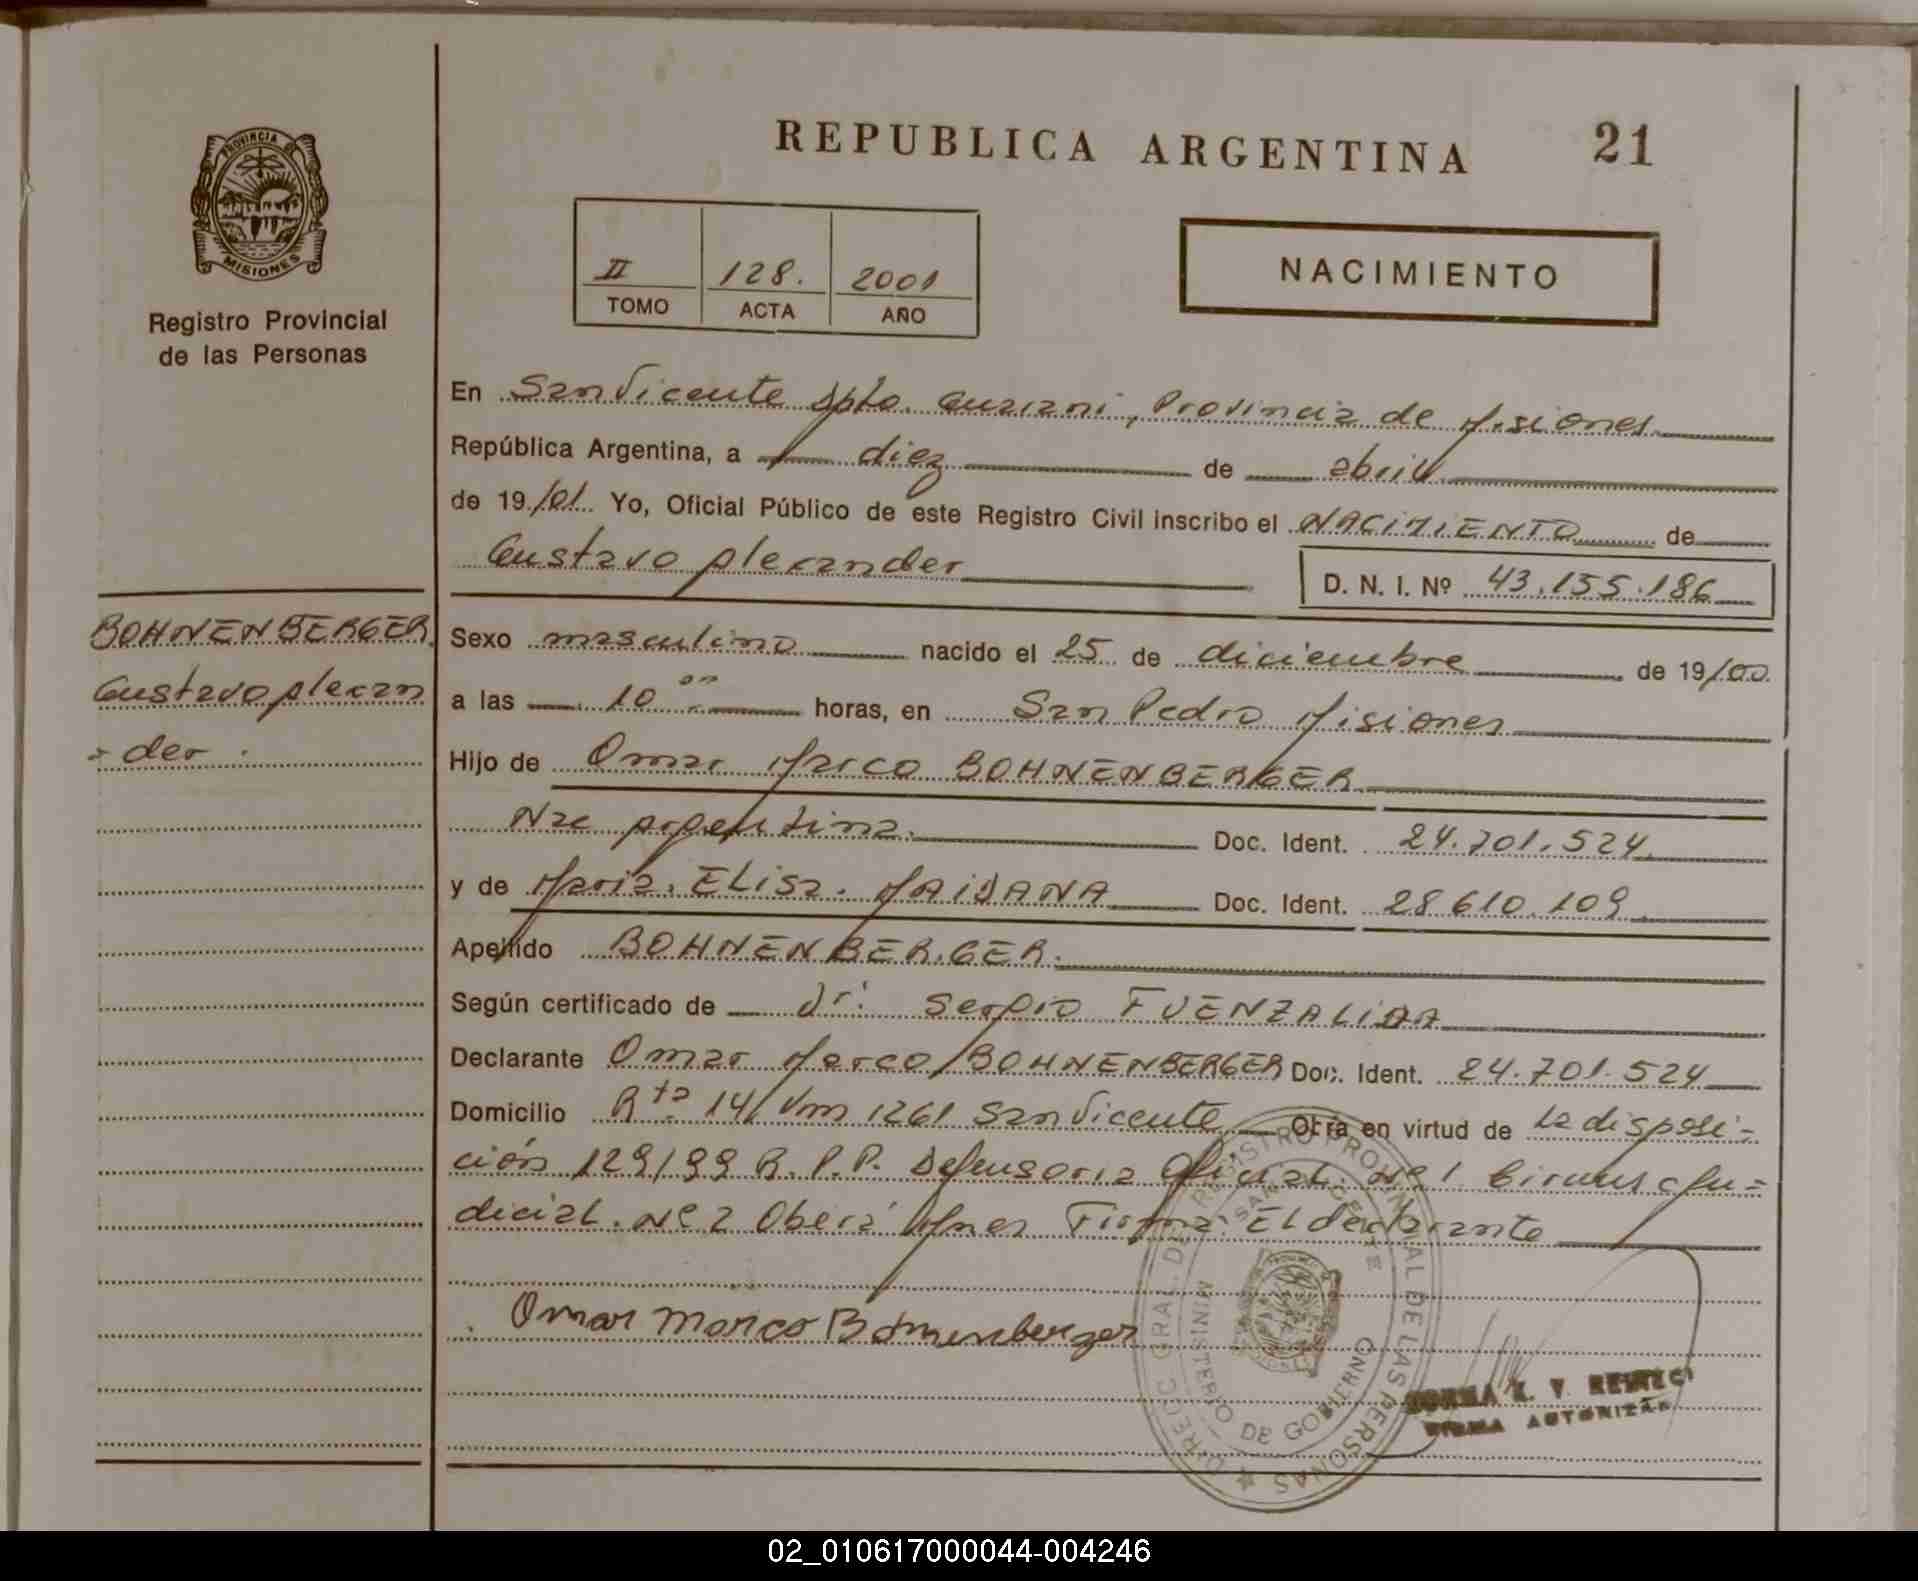 REPUBLICA ARGENTINA 21
PROVINCIA DE
MISIONES
Registro Provincial
de las Personas
II 128. 2001
TOMO ACTA AÑO
NACIMIENTO
En San Vicente Dpto. Guarani, Provincia de Misiones
República Argentina, a diez de abril
de 19/01. Yo, Oficial Público de este Registro Civil inscribo el NACIMIENTO de
Gustavo Alexander
D. N. I. Nº 43.155.186
BOHNENBERGER
Gustavo Alexan
= der.
Sexo masculino nacido el 25 de diciembre de 19/00
a las 10 00 horas, en San Pedro Misiones
Hijo de Omar Marco BOHNENBERGER
Nac Argentina. Doc. Ident. 24.701.524
y de Maria. ELisa. MAIDANA Doc. Ident. 28 610.109
Apellido BOHNENBERGER.
Según certificado de Dr: Sergio FUENZALIDA
Declarante Omar Marco BOHNENBERGER Doc. Ident. 24.701.524
Domicilio Rta 14 Km 1261 San Vicente Obra en virtud de la disposi=
ción 129/99 R.P.P. Defensoria Oficial. Nº 1 Circuns Ju=
dicial. Nº 2 Oberá Mnes Firma: El declarante
Omar Marco Bohnenberger
DIRECC GRAL. DEL REGISTRO PROVINCIAL DE LAS PERSONAS
SAN VICENTE
MINISTERIO DE GOBIERNO
NORMA K. V.
FIRMA AUTORIZADA
02_010617000044-004246